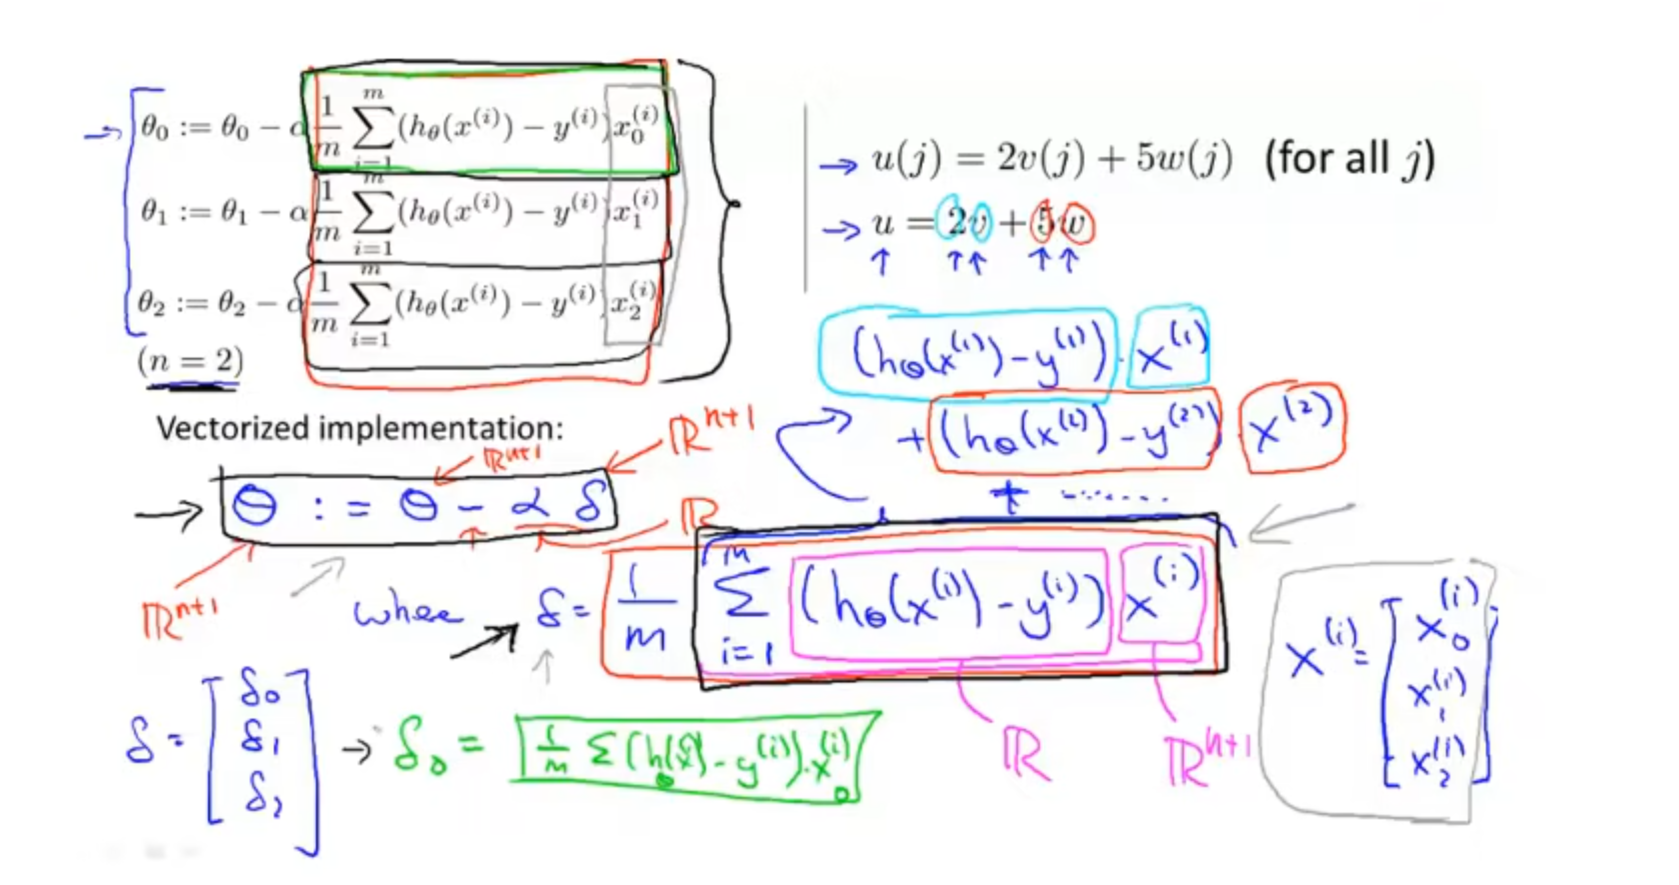 θ₀ := θ₀ − α 1/m ∑_{i=1}^{m} (h_θ(x^{(i)}) − y^{(i)}) x_0^{(i)}
θ₁ := θ₁ − α 1/m ∑_{i=1}^{m} (h_θ(x^{(i)}) − y^{(i)}) x_1^{(i)}
θ₂ := θ₂ − α 1/m ∑_{i=1}^{m} (h_θ(x^{(i)}) − y^{(i)}) x_2^{(i)}
(n = 2)
u(j) = 2v(j) + 5w(j) (for all j)
u = 2v + 5w
(h_θ(x^{(1)}) − y^{(1)}) · x^{(1)}
+ (h_θ(x^{(2)}) − y^{(2)}) x^{(2)}
+ .......
Vectorized implementation:
ℝ^{n+1}
ℝ^{n+1}
θ := θ − α δ
ℝ
ℝ^{n+1}
where δ = 1/m ∑_{i=1}^{m} (h_θ(x^{(i)}) − y^{(i)}) x^{(i)}
ℝ
ℝ^{n+1}
x^{(i)} = [x_0^{(i)}
x_1^{(i)}
x_2^{(i)}]
δ = [δ₀
δ₁
δ₂]
→ δ₀ = 1/m ∑ (h_θ(x^{(i)}) − y^{(i)}) · x_0^{(i)}